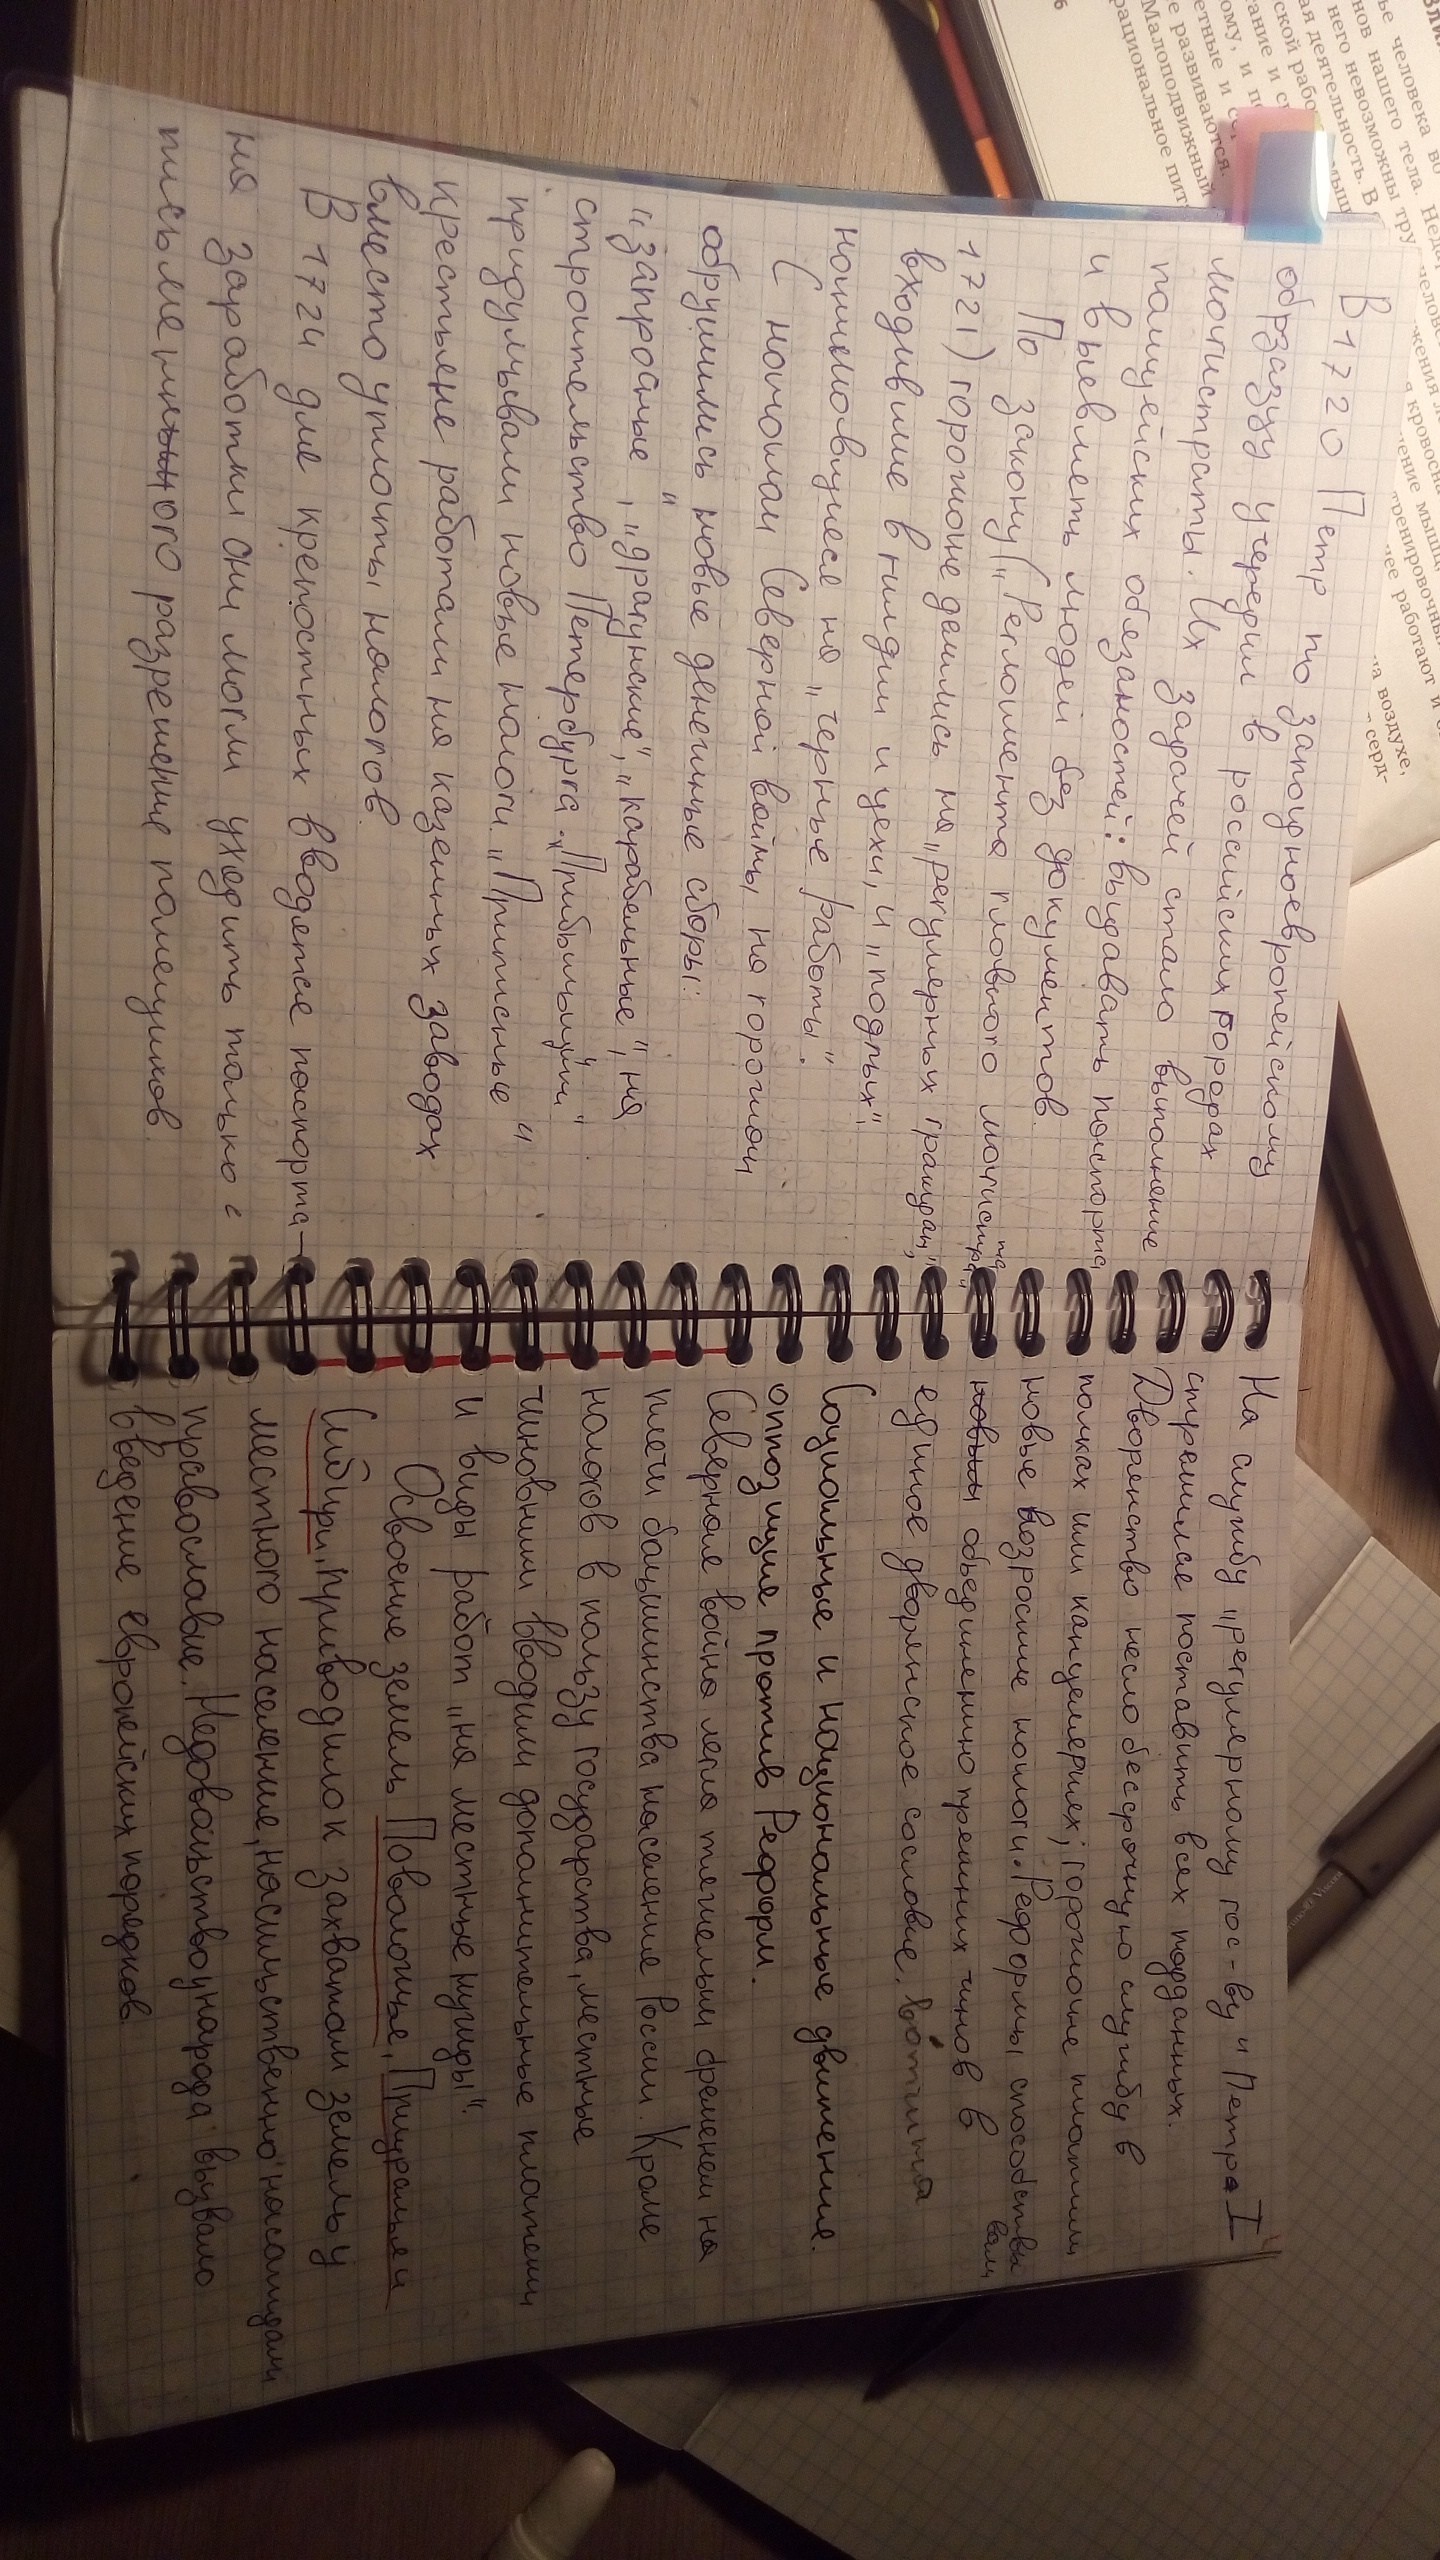 В 1720 Петр по западноевропейскому
образзу учередил в российских городах
магистраты. Их задачей стало выполнение
полицейских обязаностей: выдавать паспорта
и выевлеть людей без документов.
По закону („Регламента главного магистрата"
1721) горожане делились на „регулярных граждан",
входившие в гилдии и цехи, и „подлых",
нанимавщиеся на „черные работы".
С началом Северной войны на горожан
обрушились новые денежные сборы:
„запросные", „драгунские", „карабельные", на
строительство Петербурга. „Прибыльщии"
придумывали новые налоги. „Приписные"
крестьяне работали на казенных заводах
вместо уплоты налогов.
В 1724 для крепостных вводятся паспорта –
на заработки они могли уходить только с
письменнного разрешение помещиков.
На службу „регулярному гос-ву" Петра I
стремился поставить всех подданных.
Дворянство несло бессрочную службу в
полках или канцеляриях; горожане платили
новые возросшие налоги. Реформы способствовали
новым объединению прежних чинов в
единое дворянское сословие. вотчина
Социальные и национальные движение.
оппозиция против Реформ.
Северная война легла тяжелым бременем на
плечи бацшинства население России. Кроме
налогов в пользу государства, местные
чиновники вводили дополнительные платежи
и виды работ „на местные нужды".
Освоение земель Поволожье, Приуралья и
Сибири, приводило к захватам земель у
местного население, насильственно насаждали
православие. Недовольство народа вызвало
введение европейских порядков.
ье человека во
нов нашего тела. Недо
него невозможны тру
ая деятельность. В
ской рабо
тание и с
ому, и по
етные и
е развиваются.
Малоподвижный
рациональное пит
6
человек
жения л
кровосна
ение мышц
тренировочны
нее работают и
на воздухе,
серд-